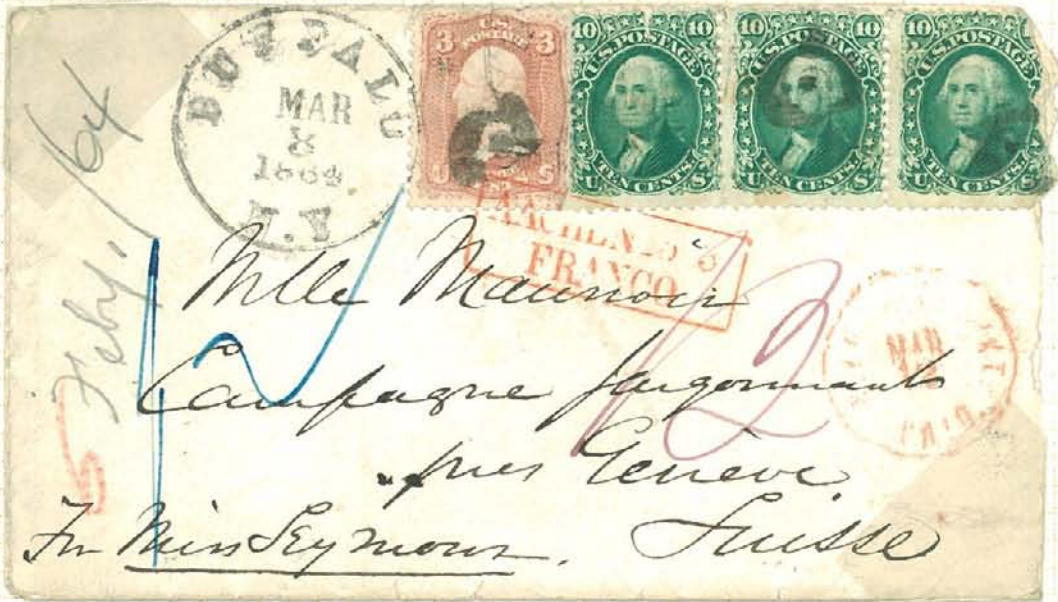 BUFFALO
MAR
8
1864
N.Y
3 U.S. POSTAGE 3
U S
10 U.S.POSTAGE 10
U TEN CENTS. S
10 U.S.POSTAGE 10
U TEN CENTS. S
10 U.S.POSTAGE 10
U TEN CENTS. S
Feby. /64
AACHEN
FRANCO
12
MAR
PAID
5
Mlle Maunoir
Campagne
près Genève
Suisse
For Miss Seymour.